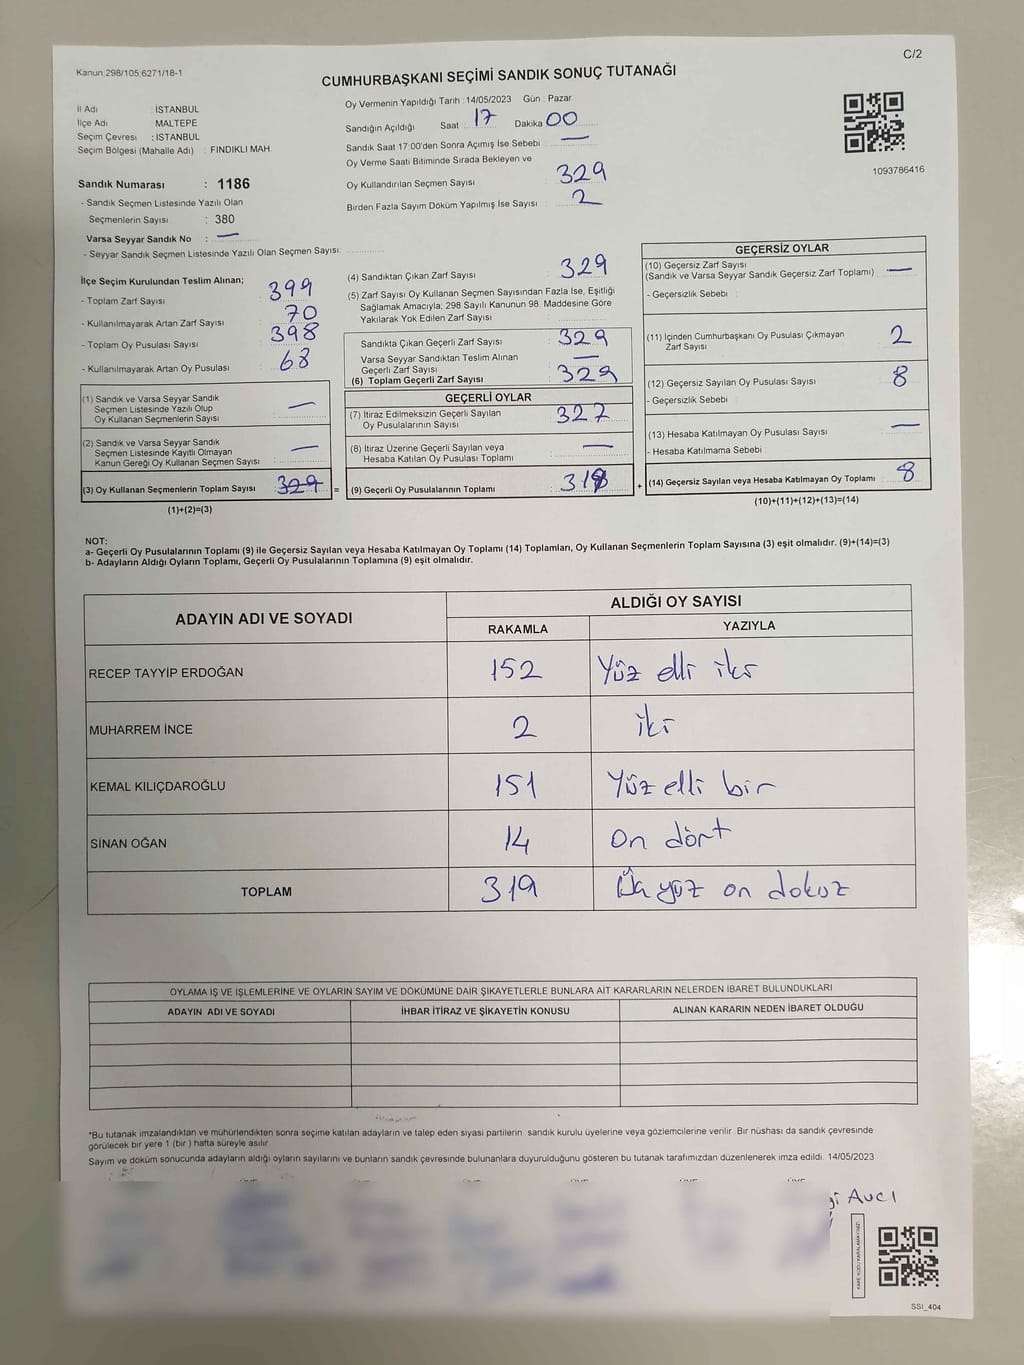 C/2
Kanun:298/105;6271/18-1
CUMHURBAŞKANI SEÇİMİ SANDIK SONUÇ TUTANAĞI
İl Adı : İSTANBUL
İlçe Adı : MALTEPE
Seçim Çevresi : İSTANBUL
Seçim Bölgesi (Mahalle Adı) : FINDIKLI MAH.
Oy Vermenin Yapıldığı Tarih : 14/05/2023 Gün : Pazar
Sandığın Açıldığı Saat : 17 Dakika : 00
Sandık Saat 17:00'den Sonra Açılmış İse Sebebi : —
Oy Verme Saati Bitiminde Sırada Bekleyen ve
Oy Kullandırılan Seçmen Sayısı : 329
Birden Fazla Sayım Döküm Yapılmış İse Sayısı : 2
1093786416
Sandık Numarası : 1186
- Sandık Seçmen Listesinde Yazılı Olan
Seçmenlerin Sayısı : 380
Varsa Seyyar Sandık No : —
- Seyyar Sandık Seçmen Listesinde Yazılı Olan Seçmen Sayısı:
İlçe Seçim Kurulundan Teslim Alınan;
- Toplam Zarf Sayısı : 399
- Kullanılmayarak Artan Zarf Sayısı : 70
- Toplam Oy Pusulası Sayısı : 398
- Kullanılmayarak Artan Oy Pusulası : 68
(1) Sandık ve Varsa Seyyar Sandık
Seçmen Listesinde Yazılı Olup
Oy Kullanan Seçmenlerin Sayısı : —
(2) Sandık ve Varsa Seyyar Sandık
Seçmen Listesinde Kayıtlı Olmayan
Kanun Gereği Oy Kullanan Seçmen Sayısı : —
(3) Oy Kullanan Seçmenlerin Toplam Sayısı : 329 =
(1)+(2)=(3)
(4) Sandıktan Çıkan Zarf Sayısı : 329
(5) Zarf Sayısı Oy Kullanan Seçmen Sayısından Fazla İse, Eşitliği
Sağlamak Amacıyla; 298 Sayılı Kanunun 98. Maddesine Göre
Yakılarak Yok Edilen Zarf Sayısı :
Sandıkta Çıkan Geçerli Zarf Sayısı : 329
Varsa Seyyar Sandıktan Teslim Alınan
Geçerli Zarf Sayısı : —
(6) Toplam Geçerli Zarf Sayısı : 329
GEÇERLİ OYLAR
(7) İtiraz Edilmeksizin Geçerli Sayılan
Oy Pusulalarının Sayısı : 327
(8) İtiraz Üzerine Geçerli Sayılan veya
Hesaba Katılan Oy Pusulası Toplamı : —
(9) Geçerli Oy Pusulalarının Toplamı : +
GEÇERSİZ OYLAR
(10) Geçersiz Zarf Sayısı
(Sandık ve Varsa Seyyar Sandık Geçersiz Zarf Toplamı) : —
- Geçersizlik Sebebi :
(11) İçinden Cumhurbaşkanı Oy Pusulası Çıkmayan
Zarf Sayısı : 2
(12) Geçersiz Sayılan Oy Pusulası Sayısı : 8
- Geçersizlik Sebebi :
(13) Hesaba Katılmayan Oy Pusulası Sayısı : —
- Hesaba Katılmama Sebebi :
(14) Geçersiz Sayılan veya Hesaba Katılmayan Oy Toplamı : 8
(10)+(11)+(12)+(13)=(14)
NOT:
a- Geçerli Oy Pusulalarının Toplamı (9) ile Geçersiz Sayılan veya Hesaba Katılmayan Oy Toplamı (14) Toplamları, Oy Kullanan Seçmenlerin Toplam Sayısına (3) eşit olmalıdır. (9)+(14)=(3)
b- Adayların Aldığı Oyların Toplamı, Geçerli Oy Pusulalarının Toplamına (9) eşit olmalıdır.
ADAYIN ADI VE SOYADI ALDIĞI OY SAYISI
RAKAMLA YAZIYLA
RECEP TAYYİP ERDOĞAN 152 Yüz elli iki
MUHARREM İNCE 2 iki
KEMAL KILIÇDAROĞLU 151 Yüz elli bir
SİNAN OĞAN 14 On dört
TOPLAM 319 Üç yüz on dokuz
OYLAMA İŞ VE İŞLEMLERİNE VE OYLARIN SAYIM VE DÖKÜMÜNE DAİR ŞİKAYETLERLE BUNLARA AİT KARARLARIN NELERDEN İBARET BULUNDUKLARI
ADAYIN ADI VE SOYADI İHBAR İTİRAZ VE ŞİKAYETİN KONUSU ALINAN KARARIN NEDEN İBARET OLDUĞU
*Bu tutanak imzalandıktan ve mühürlendikten sonra seçime katılan adayların ve talep eden siyasi partilerin sandık kurulu üyelerine veya gözlemcilerine verilir. Bir nüshası da sandık çevresinde
görülecek bir yere 1 (bir ) hafta süreyle asılır.
Sayım ve döküm sonucunda adayların aldığı oyların sayılarını ve bunların sandık çevresinde bulunanlara duyurulduğunu gösteren bu tutanak tarafımızdan düzenlenerek imza edildi. 14/05/2023
Avcı
KARE KODU KARALAMAYINIZ!
SSI_404